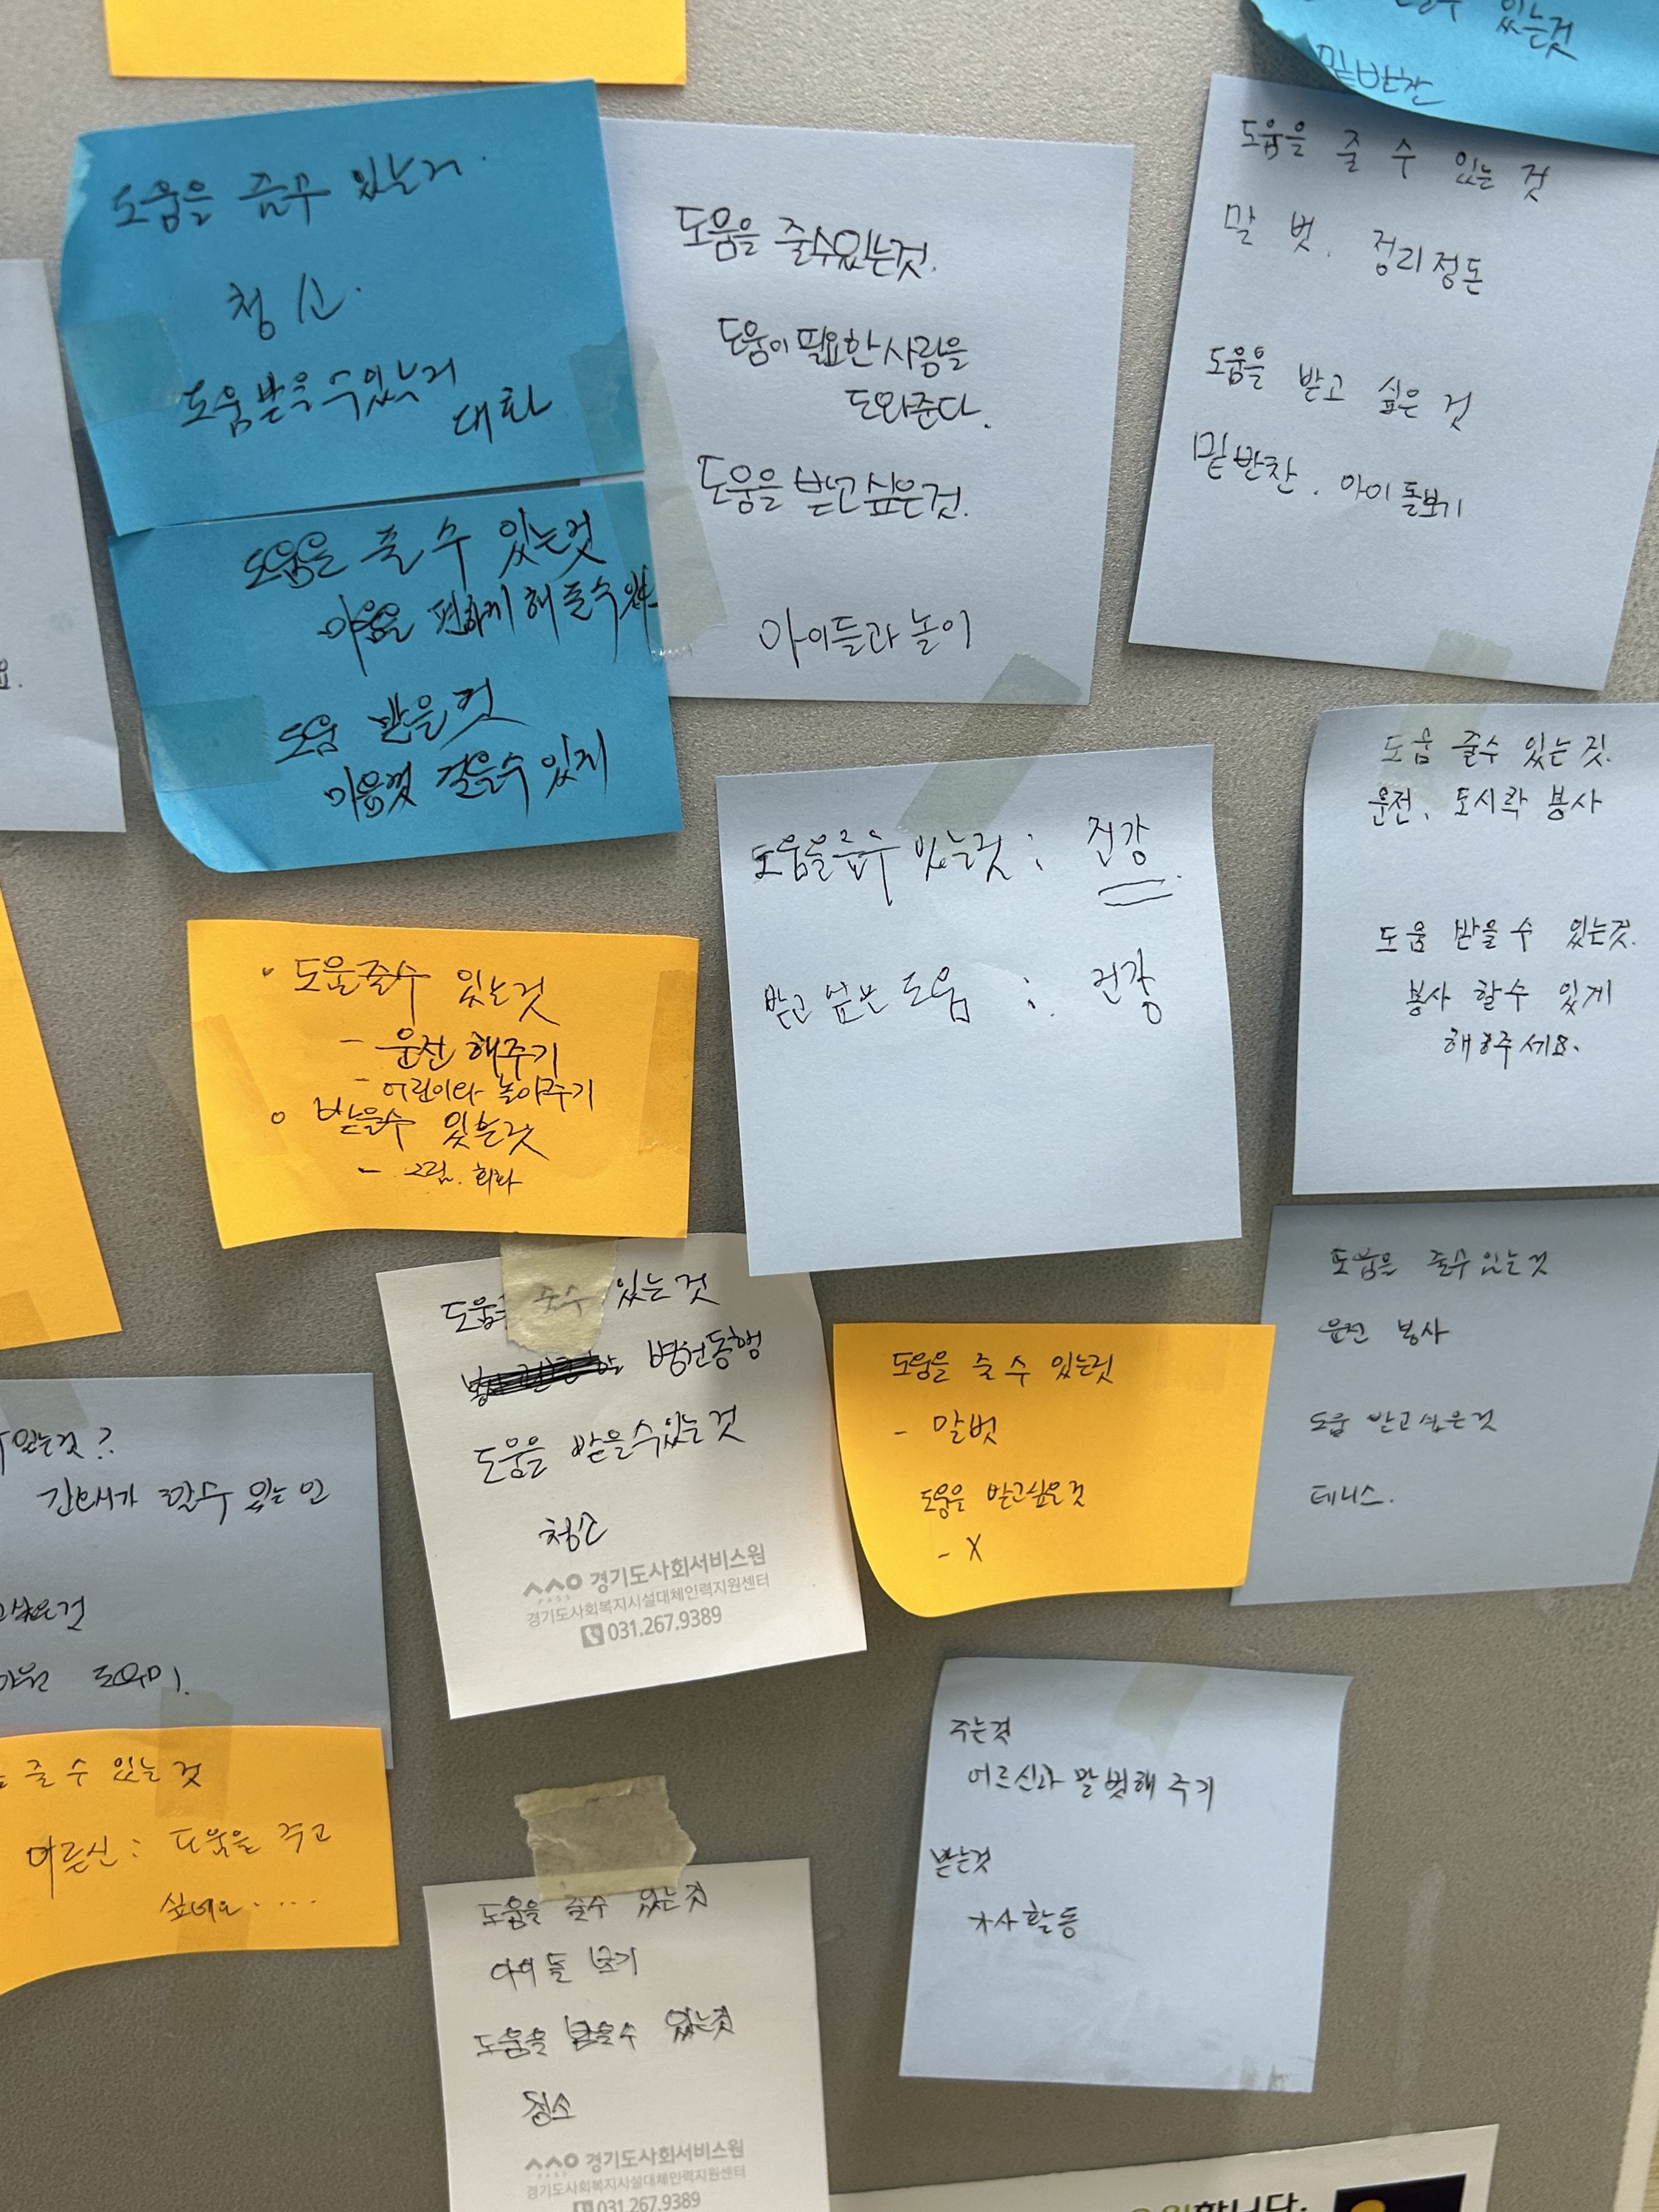 있는것
밑반찬
도움을 줄수 있는거
청소
도움 받을 수 있는거
대화
도움을 줄 수 있는것
마음을 편하게 해 줄수
도움 받을것
마음껏 걸을수 있게
도움을 줄수있는것.
도움이 필요한 사람을
도와준다.
도움을 받고 싶은것.
아이들과 놀이
도움을 줄 수 있는 것
말 벗. 정리정돈
도움을 받고 싶은 것
밑반찬. 아이 돌보기
요.
도움 줄수 있는 것.
운전, 도시락 봉사
도움 받을 수 있는것.
봉사 할수 있게
해주세요.
도움을 줄수 있는것 : 건강
받고 싶은 도움 : 건강
• 도움줄수 있는것
- 운전 해주기
- 어린이와 놀아주기
○ 받을수 있는것
- 그림. 회화
도움을 줄수 있는것
운전 봉사
도움 받고싶은것
테니스.
도움 줄수 있는 것
병원동행
도움을 받을수있는 것
청소
경기도사회서비스원
경기도사회복지시설대체인력지원센터
031.267.9389
도움을 줄 수 있는것
- 말벗
도움을 받고싶은것
- X
있는것?
간병사가 할수 있는 인
고싶은것
도우미.
줄 수 있는 것
어르신 : 도움을 주고
싶네요.....
주는것
어르신과 말 벗해 주기
받는것
식사활동
도움을 줄수 있는것
아이 돌 보기
도움을 받을수 있는것
청소
경기도사회서비스원
경기도사회복지시설대체인력지원센터
031.267.9389
합니다.